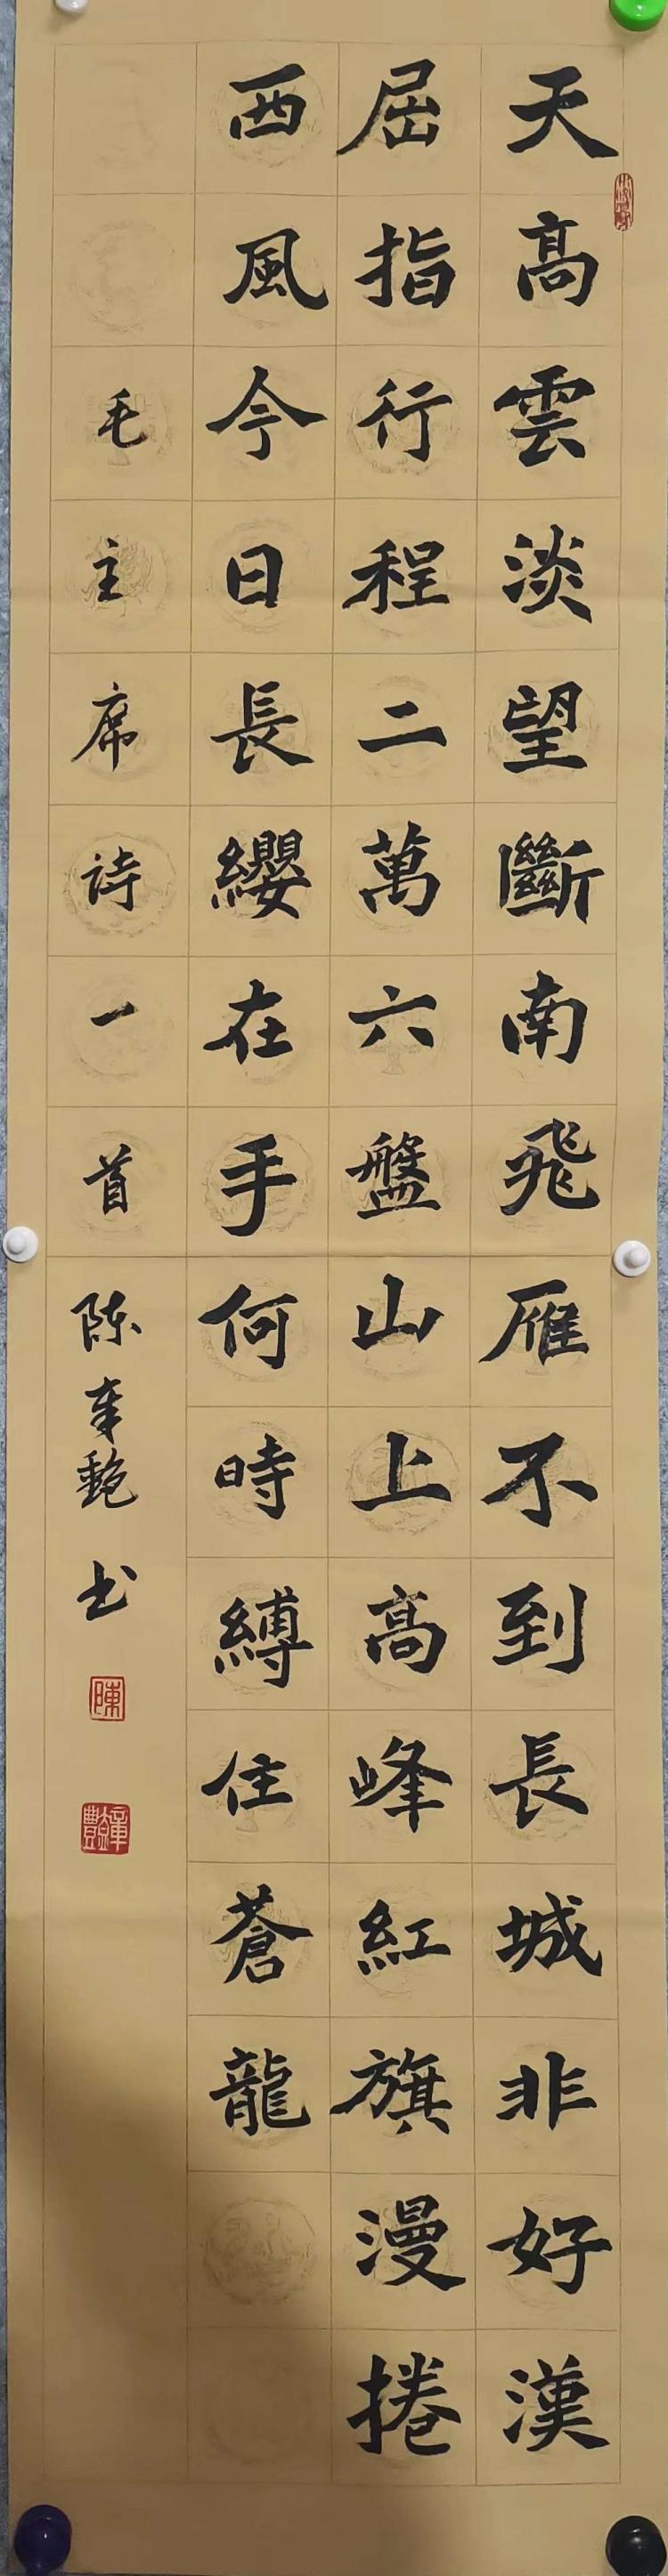 天高雲淡望斷南飛雁不到長城非好漢
屈指行程二萬六盤山上高峰紅旗漫捲
西風今日長纓在手何時縛住蒼龍
毛主席诗一首
陈
书
陳